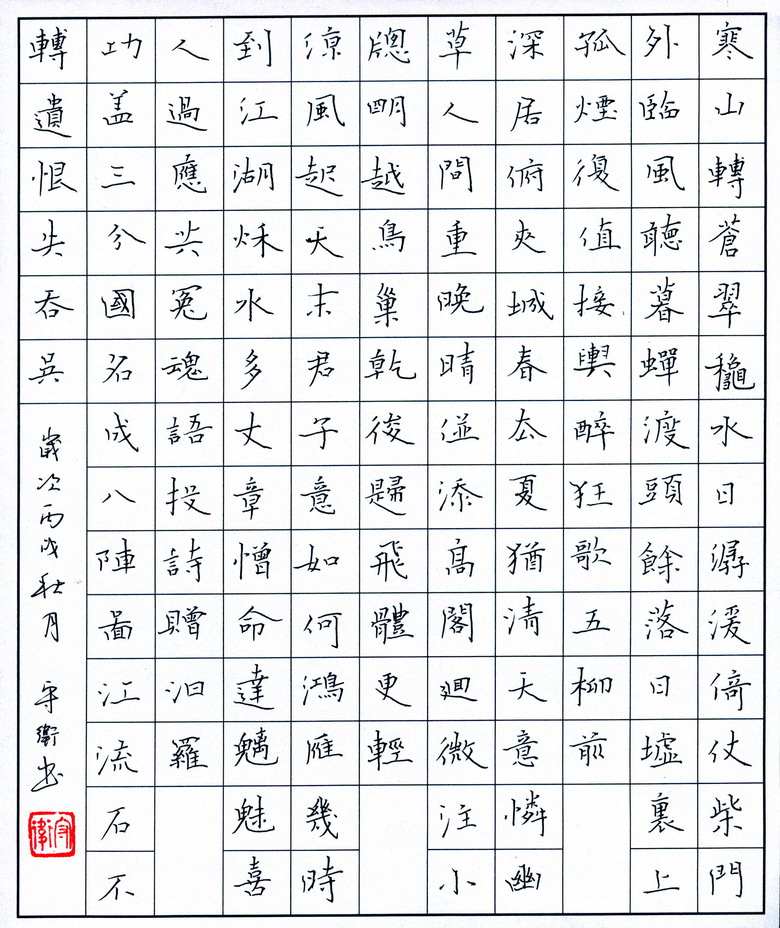 寒山轉蒼翠龝水日潺湲倚仗柴門
外臨風聽暮蟬渡頭餘落日墟裏上
孤煙復值接輿醉狂歌五柳前
深居俯夾城春去夏猶清天意憐幽
草人間重晚晴併添高閣迴微注小
牕明越鳥巢乾後歸飛體更輕
涼風起天末君子意如何鴻雁幾時
到江湖秌水多文章憎命達魑魅喜
人過應共冤魂語投詩贈汨羅
功盖三分國名成八陣圖江流石不
轉遺恨失吞吳
歲次丙戌秋月 守衛書
守衛